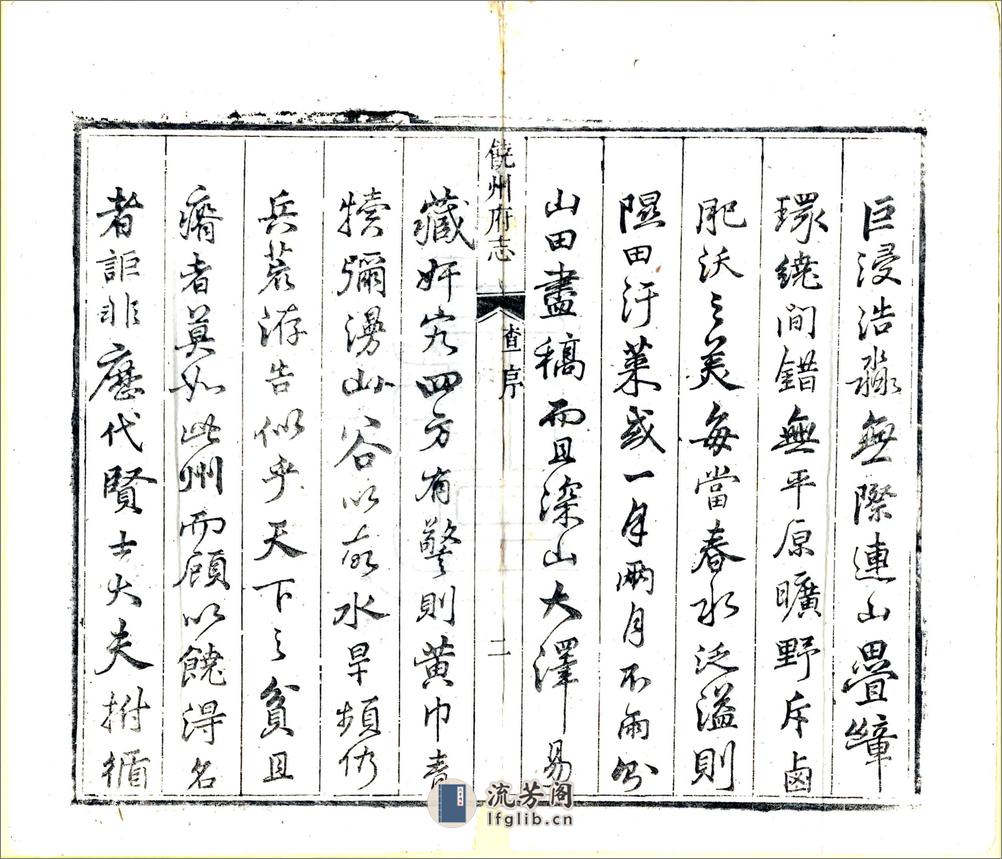 巨浸浩淼無際連山疊嶂
環繞間錯無平原曠野斥鹵
肥沃之美每當春水泛溢則
隰田汙萊或一月兩月不雨則
山田盡槁而且深山大澤易
饒州府志
查序
二
藏奸宄四方有警則黃巾青
犢彌漫山谷以故水旱頻仍
兵荒洊告似乎天下之貧且
瘠者莫如此州而顧以饒得名
者詎非歷代賢士大夫拊循
流芳阁
lfglib.cn